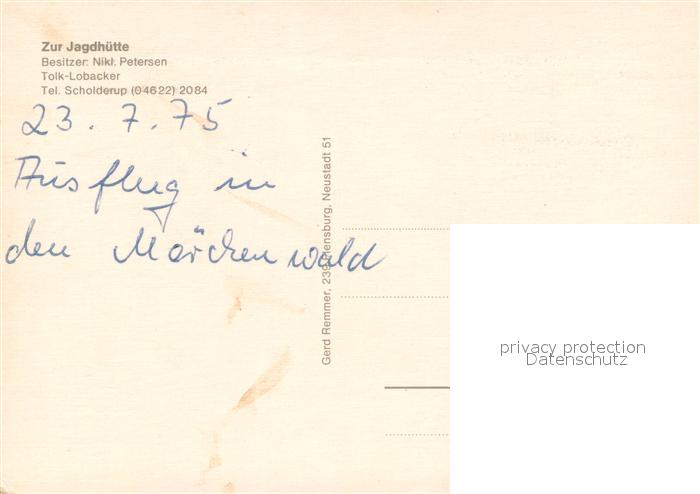 Zur Jagdhütte
Besitzer: Nikl. Petersen
Tolk-Lobacker
Tel. Scholderup (04622) 2084
23. 7. 75
Ausflug in
den Märchenwald
Gerd Remmer, 239 Flensburg, Neustadt 51
privacy protection
Datenschutz